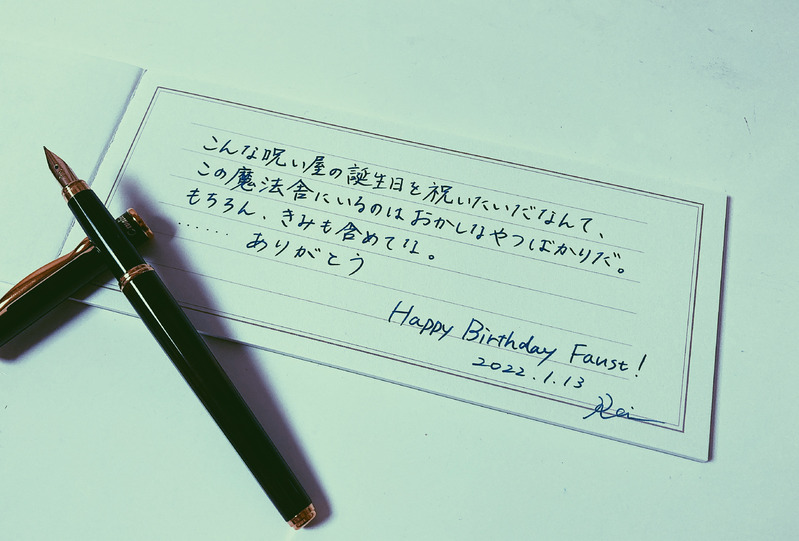 こんな呪い屋の誕生日を祝いたいだなんて、
この魔法舎にいるのはおかしなやつばかりだ。
もちろん、きみも含めてな。
……ありがとう
Happy Birthday Faust!
2022.1.13
Rei